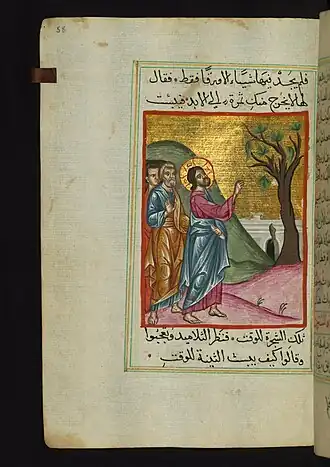 58
فلم يجد فيها شيئا الا ورقا فقط ٭ فقال
لها لا يخرج منك ثمرة الى الابد فيبست
تلك الشجرة للوقت ٭ فنظر التلاميذ وتعجبوا
وقالوا كيف يبست التينة للوقت ٭